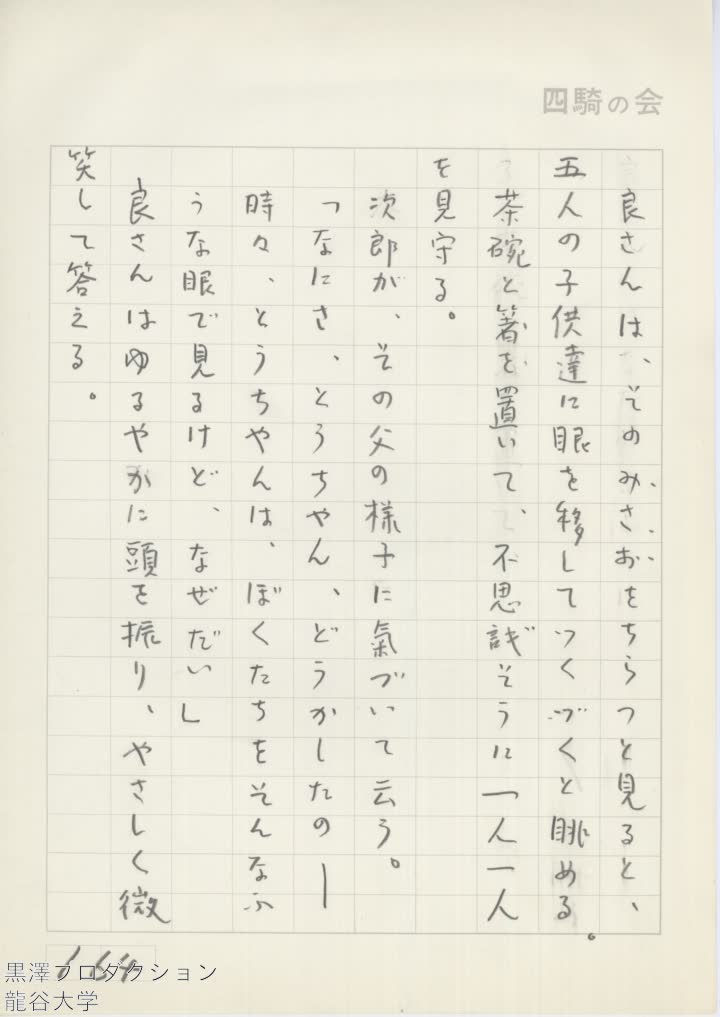 四騎の会
良さんは、そのみさおをちらつと見ると、
五人の子供達に眼を移してつくづくと眺める。
茶碗と箸を置いて、不思議そうに一人一人
を見守る。
次郎が、その父の様子に氣づいて云う。
「なにさ、とうちやん、どうかしたの―
時々、とうちやんは、ぼくたちをそんなふ
うな眼で見るけど、なぜだい」
良さんはゆるやかに頭を振り、やさしく微
笑して答える。
黒澤プロダクション
龍谷大学